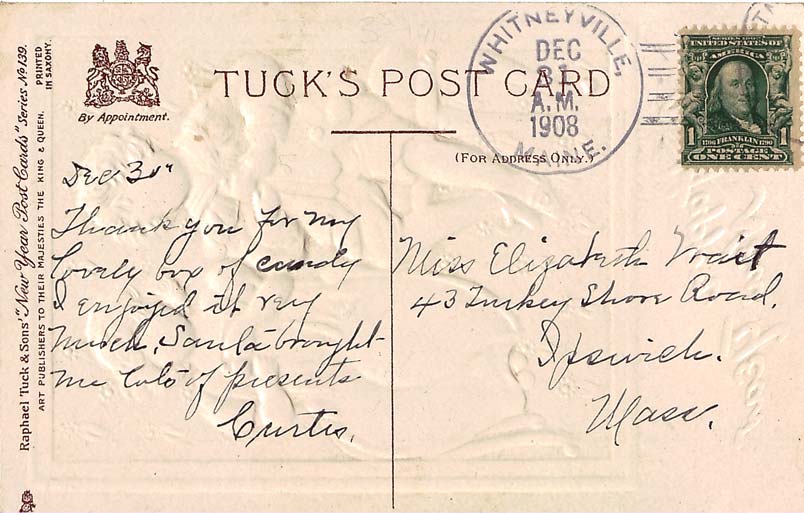 Raphael Tuck & Sons' "New Year Post Cards" Series No 139.
ART PUBLISHERS TO THEIR MAJESTIES THE KING & QUEEN.
PRINTED
IN SAXONY.
By Appointment.
TUCK'S POST CARD
(FOR ADDRESS ONLY.)
WHITNEYVILLE,
DEC
31
A.M.
1908
MAINE.
UNITED STATES OF
AMERICA
1706 FRANKLIN 1790
1 POSTAGE
ONE CENT
Dec 30th
Thank you for my
lovely box of candy
I enjoyed it very
much, Santa brought
me lots of presents
Curtis.
Miss Elizabeth
43 Turkey Shore Road.
Ipswich.
Mass.